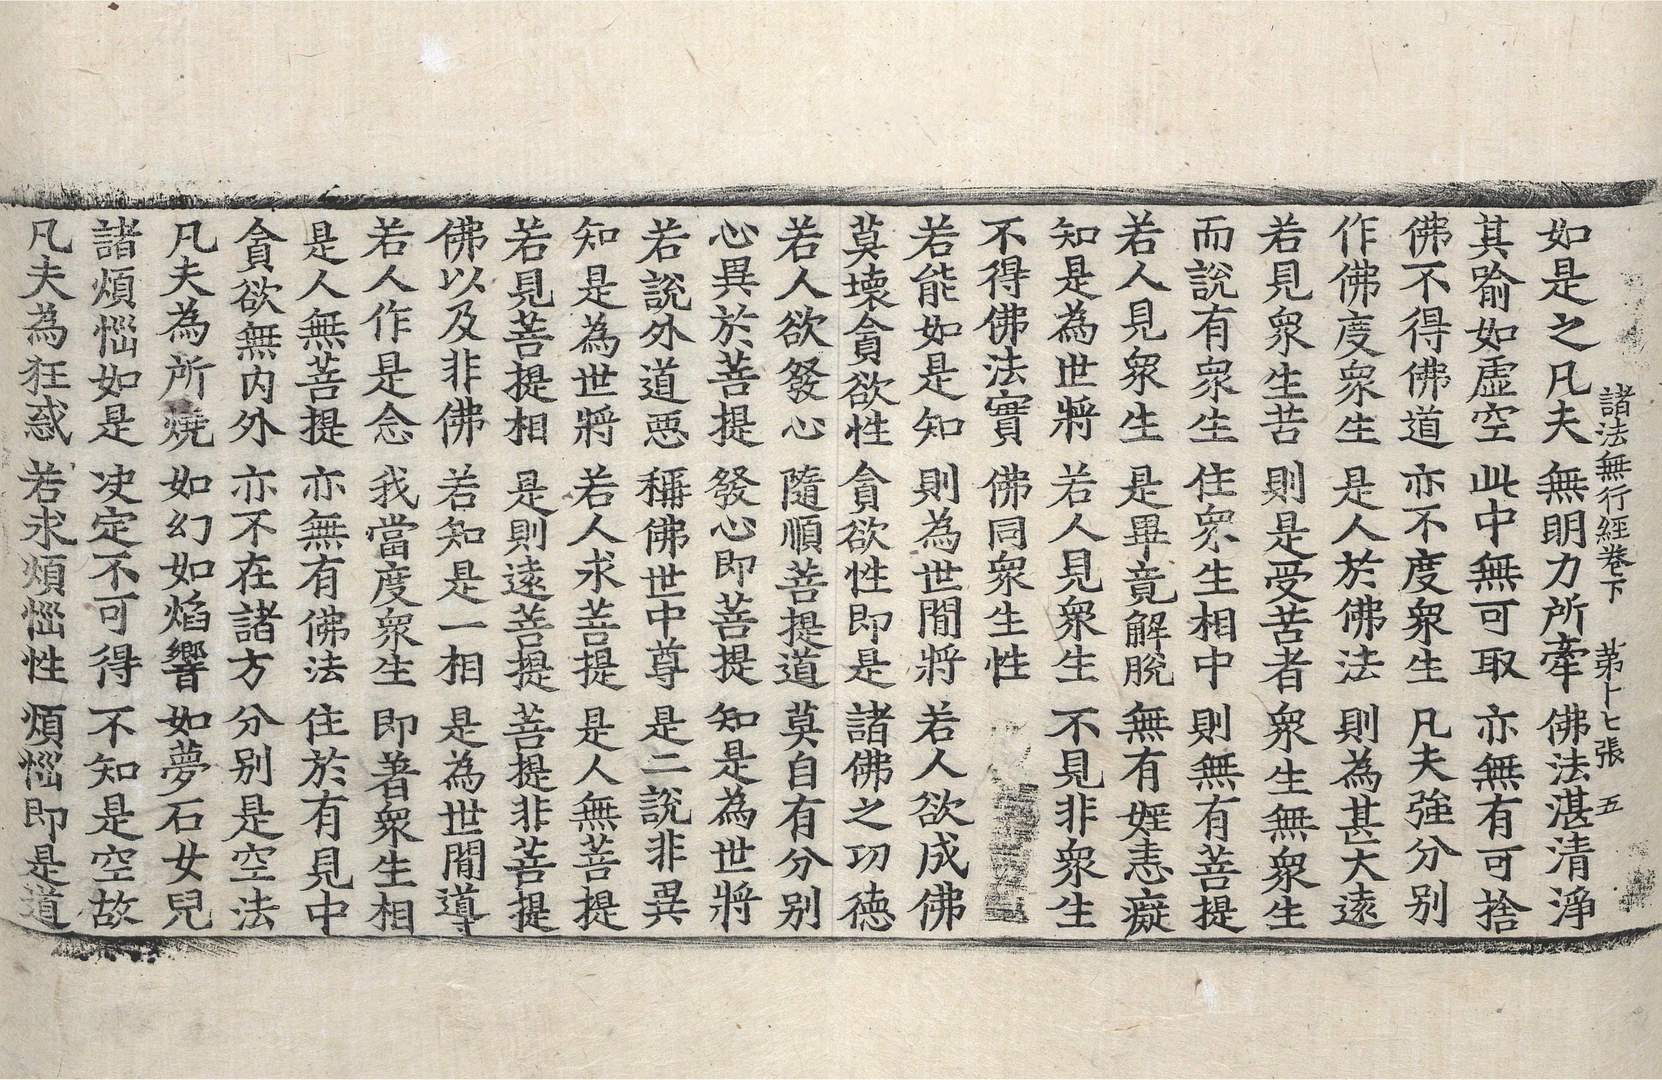 諸法無行經卷下　第卜七張　五
如是之凡夫　無明力所牽　佛法湛清淨
其喩如虛空　此中無可取　亦無有可捨
佛不得佛道　亦不度衆生　凡夫強分別
作佛度衆生　是人於佛法　則為甚大遠
若見衆生苦　則是受苦者　衆生無衆生
而說有衆生　住衆生相中　則無有菩提
若人見衆生　是畢竟解脫　無有婬恚癡
知是為世將　若人見衆生　不見非衆生
不得佛法實　佛同衆生性
若能如是知　則為世間將　若人欲成佛
莫壞貪欲性　貪欲性即是　諸佛之功德
若人欲發心　隨順菩提道　莫自有分別
心異於菩提　發心即菩提　知是為世將
若說外道惡　稱佛世中尊　是二說非異
知是為世將　若人求菩提　是人無菩提
若見菩提相　是則遠菩提　菩提非菩提
佛以及非佛　若知是一相　是為世間導
若人作是念　我當度衆生　即著衆生相
是人無菩提　亦無有佛法　住於有見中
貪欲無內外　亦不在諸方　分別是空法
凡夫為所燒　如幻如焰響　如夢石女兒
諸煩惱如是　决定不可得　不知是空故
凡夫為狂惑　若求煩惱性　煩惱即是道